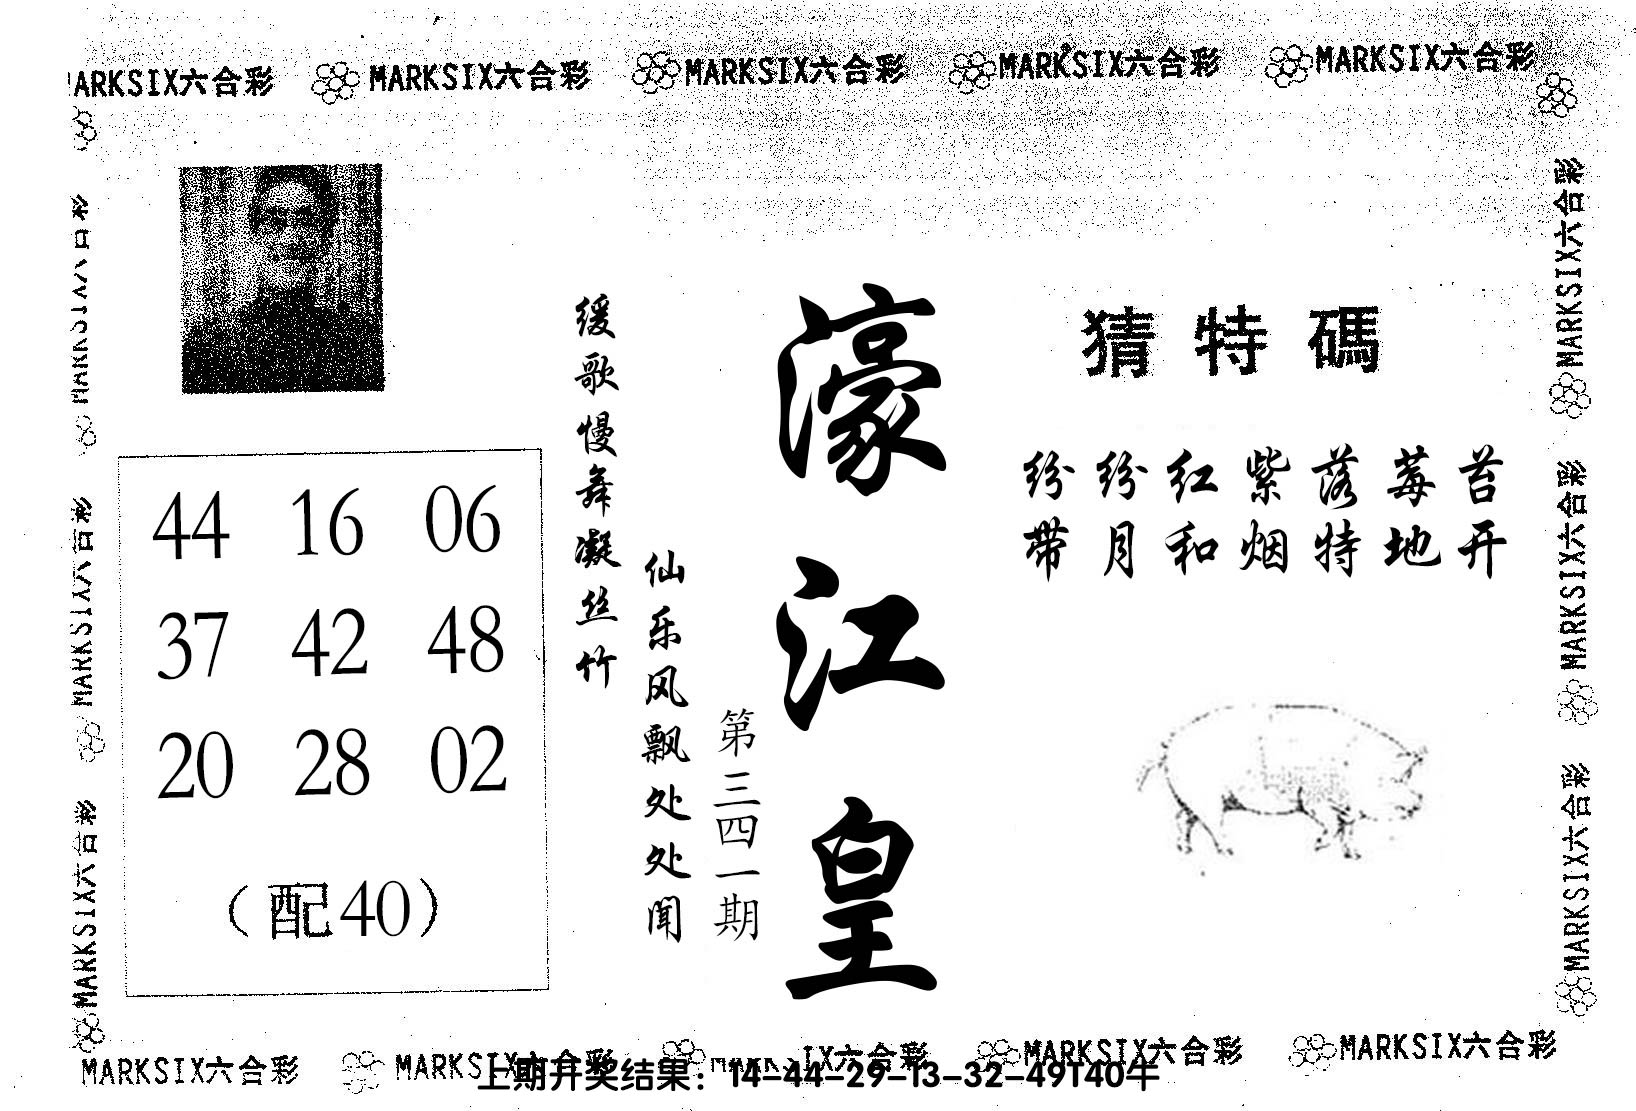 MARKSIX六合彩 MARKSIX六合彩 MARKSIX六合彩 MARKSIX六合彩
猜特碼
纷纷红紫落莓苔
带月和烟特地开
濠江皇
第三四一期
缓歌慢舞凝丝竹
仙乐风飘处处闻
44 16 06
37 42 48
20 28 02
（配40）
MARKSIX六合彩
MARKSIX六合彩
MARKSIX六合彩
MARKSIX六合彩
MARKSIX六合彩
MARKSIX六合彩 MARKSIX六合彩 MARKSIX六合彩 MARKSIX六合彩
上期开奖结果：14-44-29-13-32-49T40牛